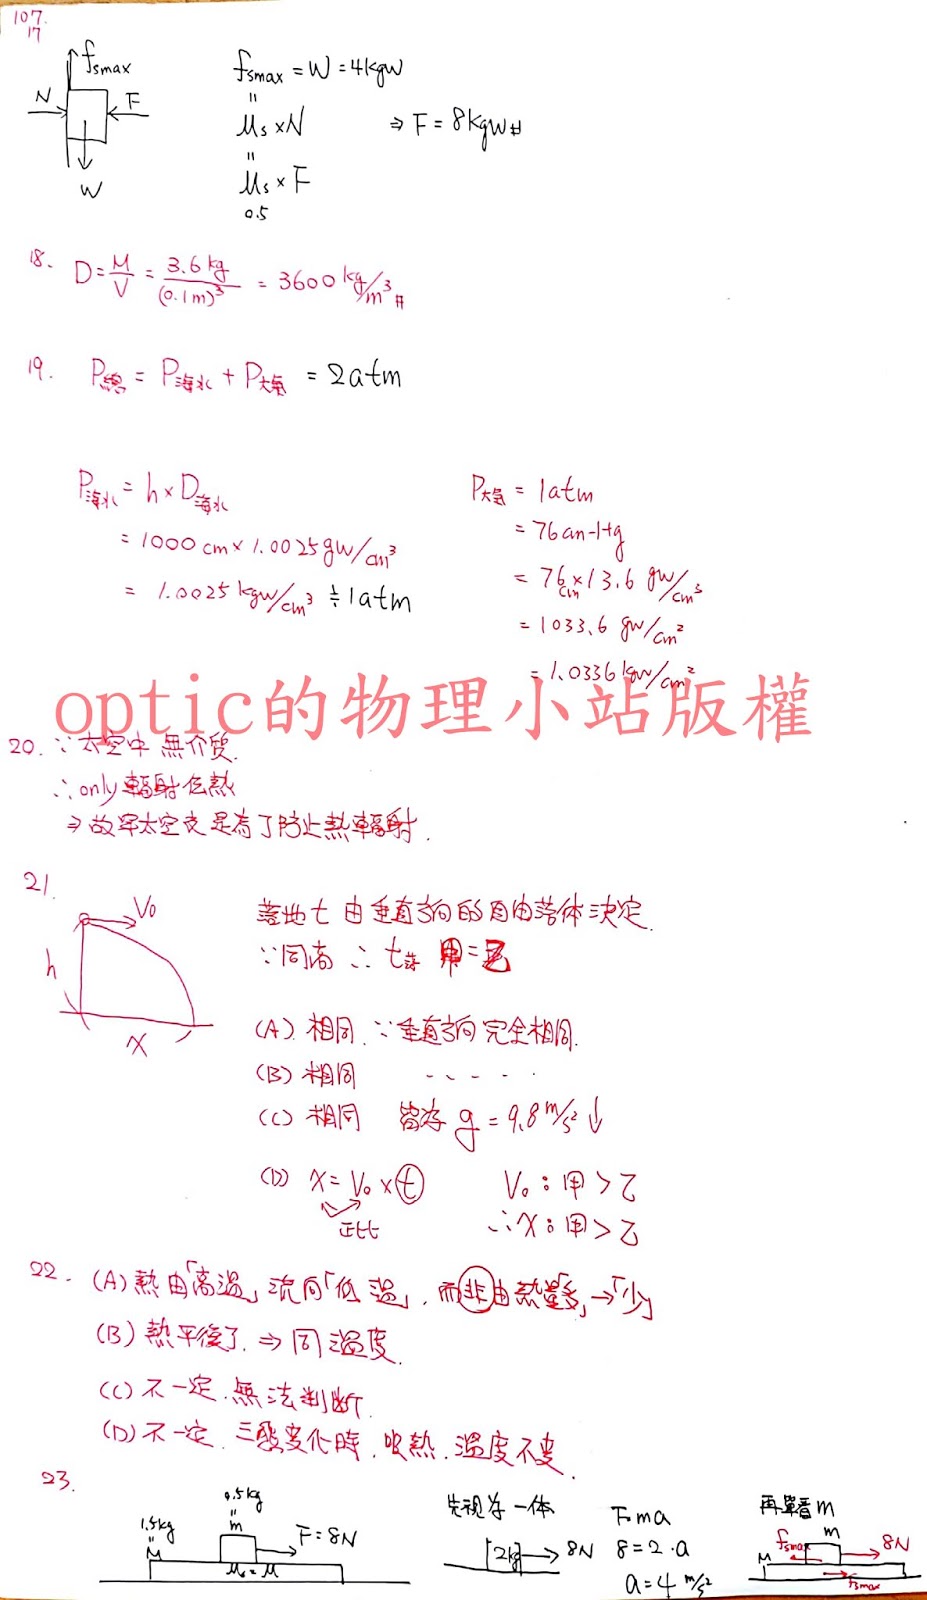 107.
17
fsmax
N
F
W
fsmax = W = 4kgw
=
μs × N ⇒ F = 8kgw#
=
μs × F
0.5
18. D = M/V = 3.6kg/(0.1m)³ = 3600 kg/m³ #
19. P總 = P海水 + P大氣 = 2atm
P海水 = h × D海水
= 1000 cm × 1.0025 gw/cm³
= 1.0025 kgw/cm³ ≒ 1atm
P大氣 = 1atm
= 76cm-Hg
= 76cm × 13.6 gw/cm³
= 1033.6 gw/cm²
= 1.0336 kgw/cm²
optic的物理小站版權
20. ∵太空中 無介質.
∴only 輻射傳熱
⇒ 故穿太空衣是為了防止熱輻射.
21.
V₀
h
x
落地 t 由垂直方向的自由落體決定.
∵同高 ∴ t落 甲=乙
(A) 相同 ∵垂直方向完全相同.
(B) 相同 ‐ ‐ ‐ ‐ ‐
(C) 相同 皆為 g = 9.8 m/s² ↓
(D) x = V₀ × t V₀: 甲 > 乙
正比 ∴ x: 甲 > 乙
22. (A) 熱由「高溫」流向「低溫」, 而非由熱量「多」→「少」
(B) 熱平衡了 ⇒ 同溫度.
(C) 不一定. 無法判斷.
(D) 不一定. 三態變化時, 吸熱, 溫度不變.
23.
0.5kg
=
m
1.5kg
=
M
F = 8N
μs = μ
先視為一體
2kg
8N
F=ma
8 = 2·a
a = 4 m/s²
再單看 m
fsmax
m
8N
M
fsmax